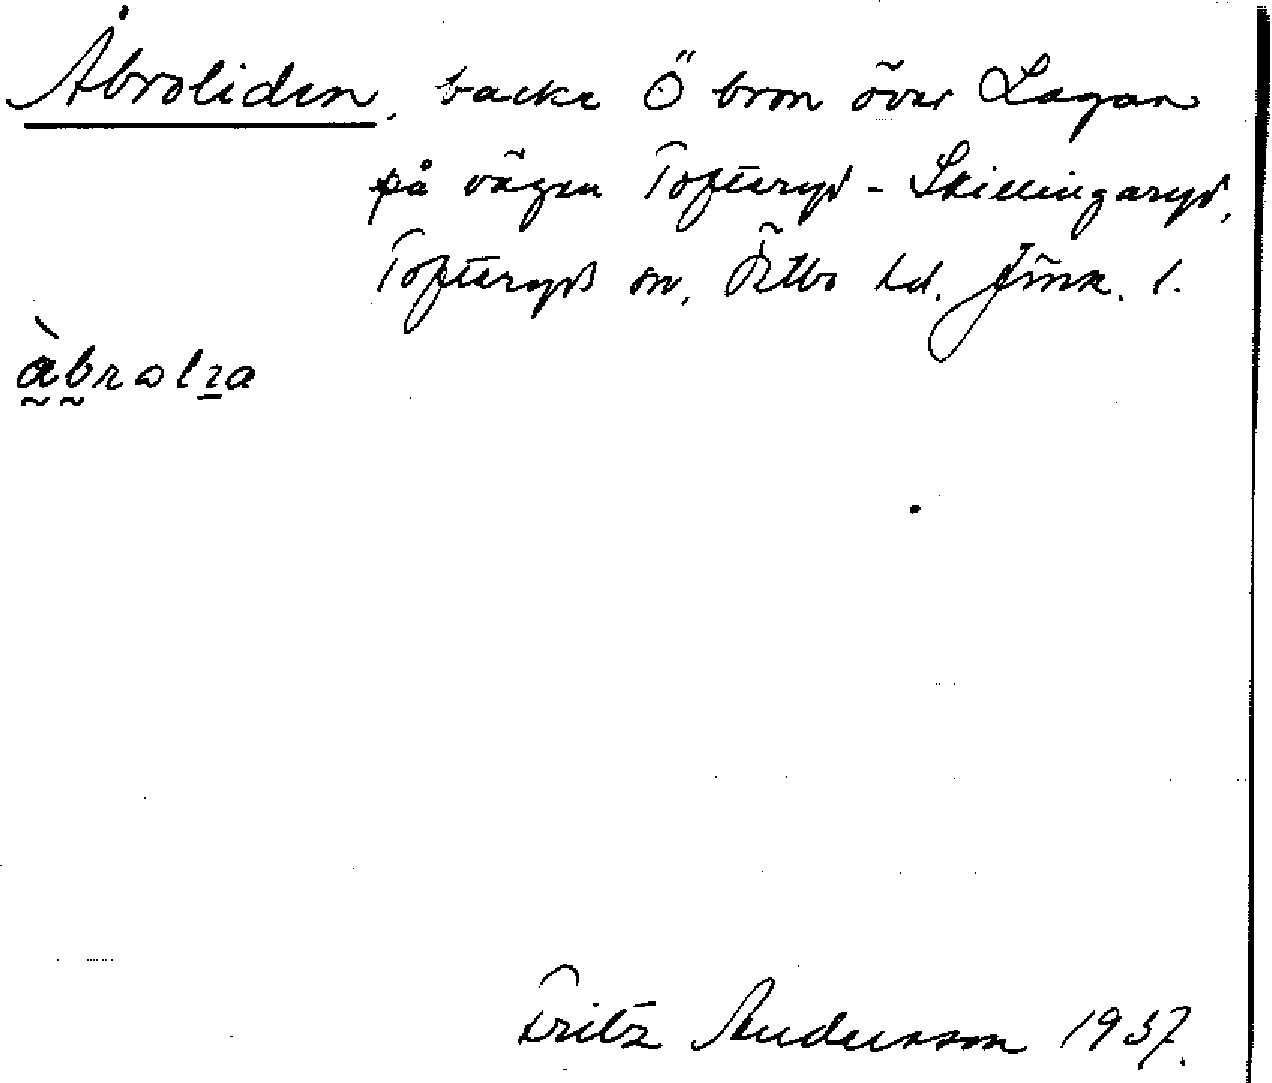 Åbroliden, backe Ö bron över Lagan
på vägen Tofteryd - Skillingaryd,
Tofteryds sn, Östbo hd. Jönk. l.
Fritz Andersson 1937.